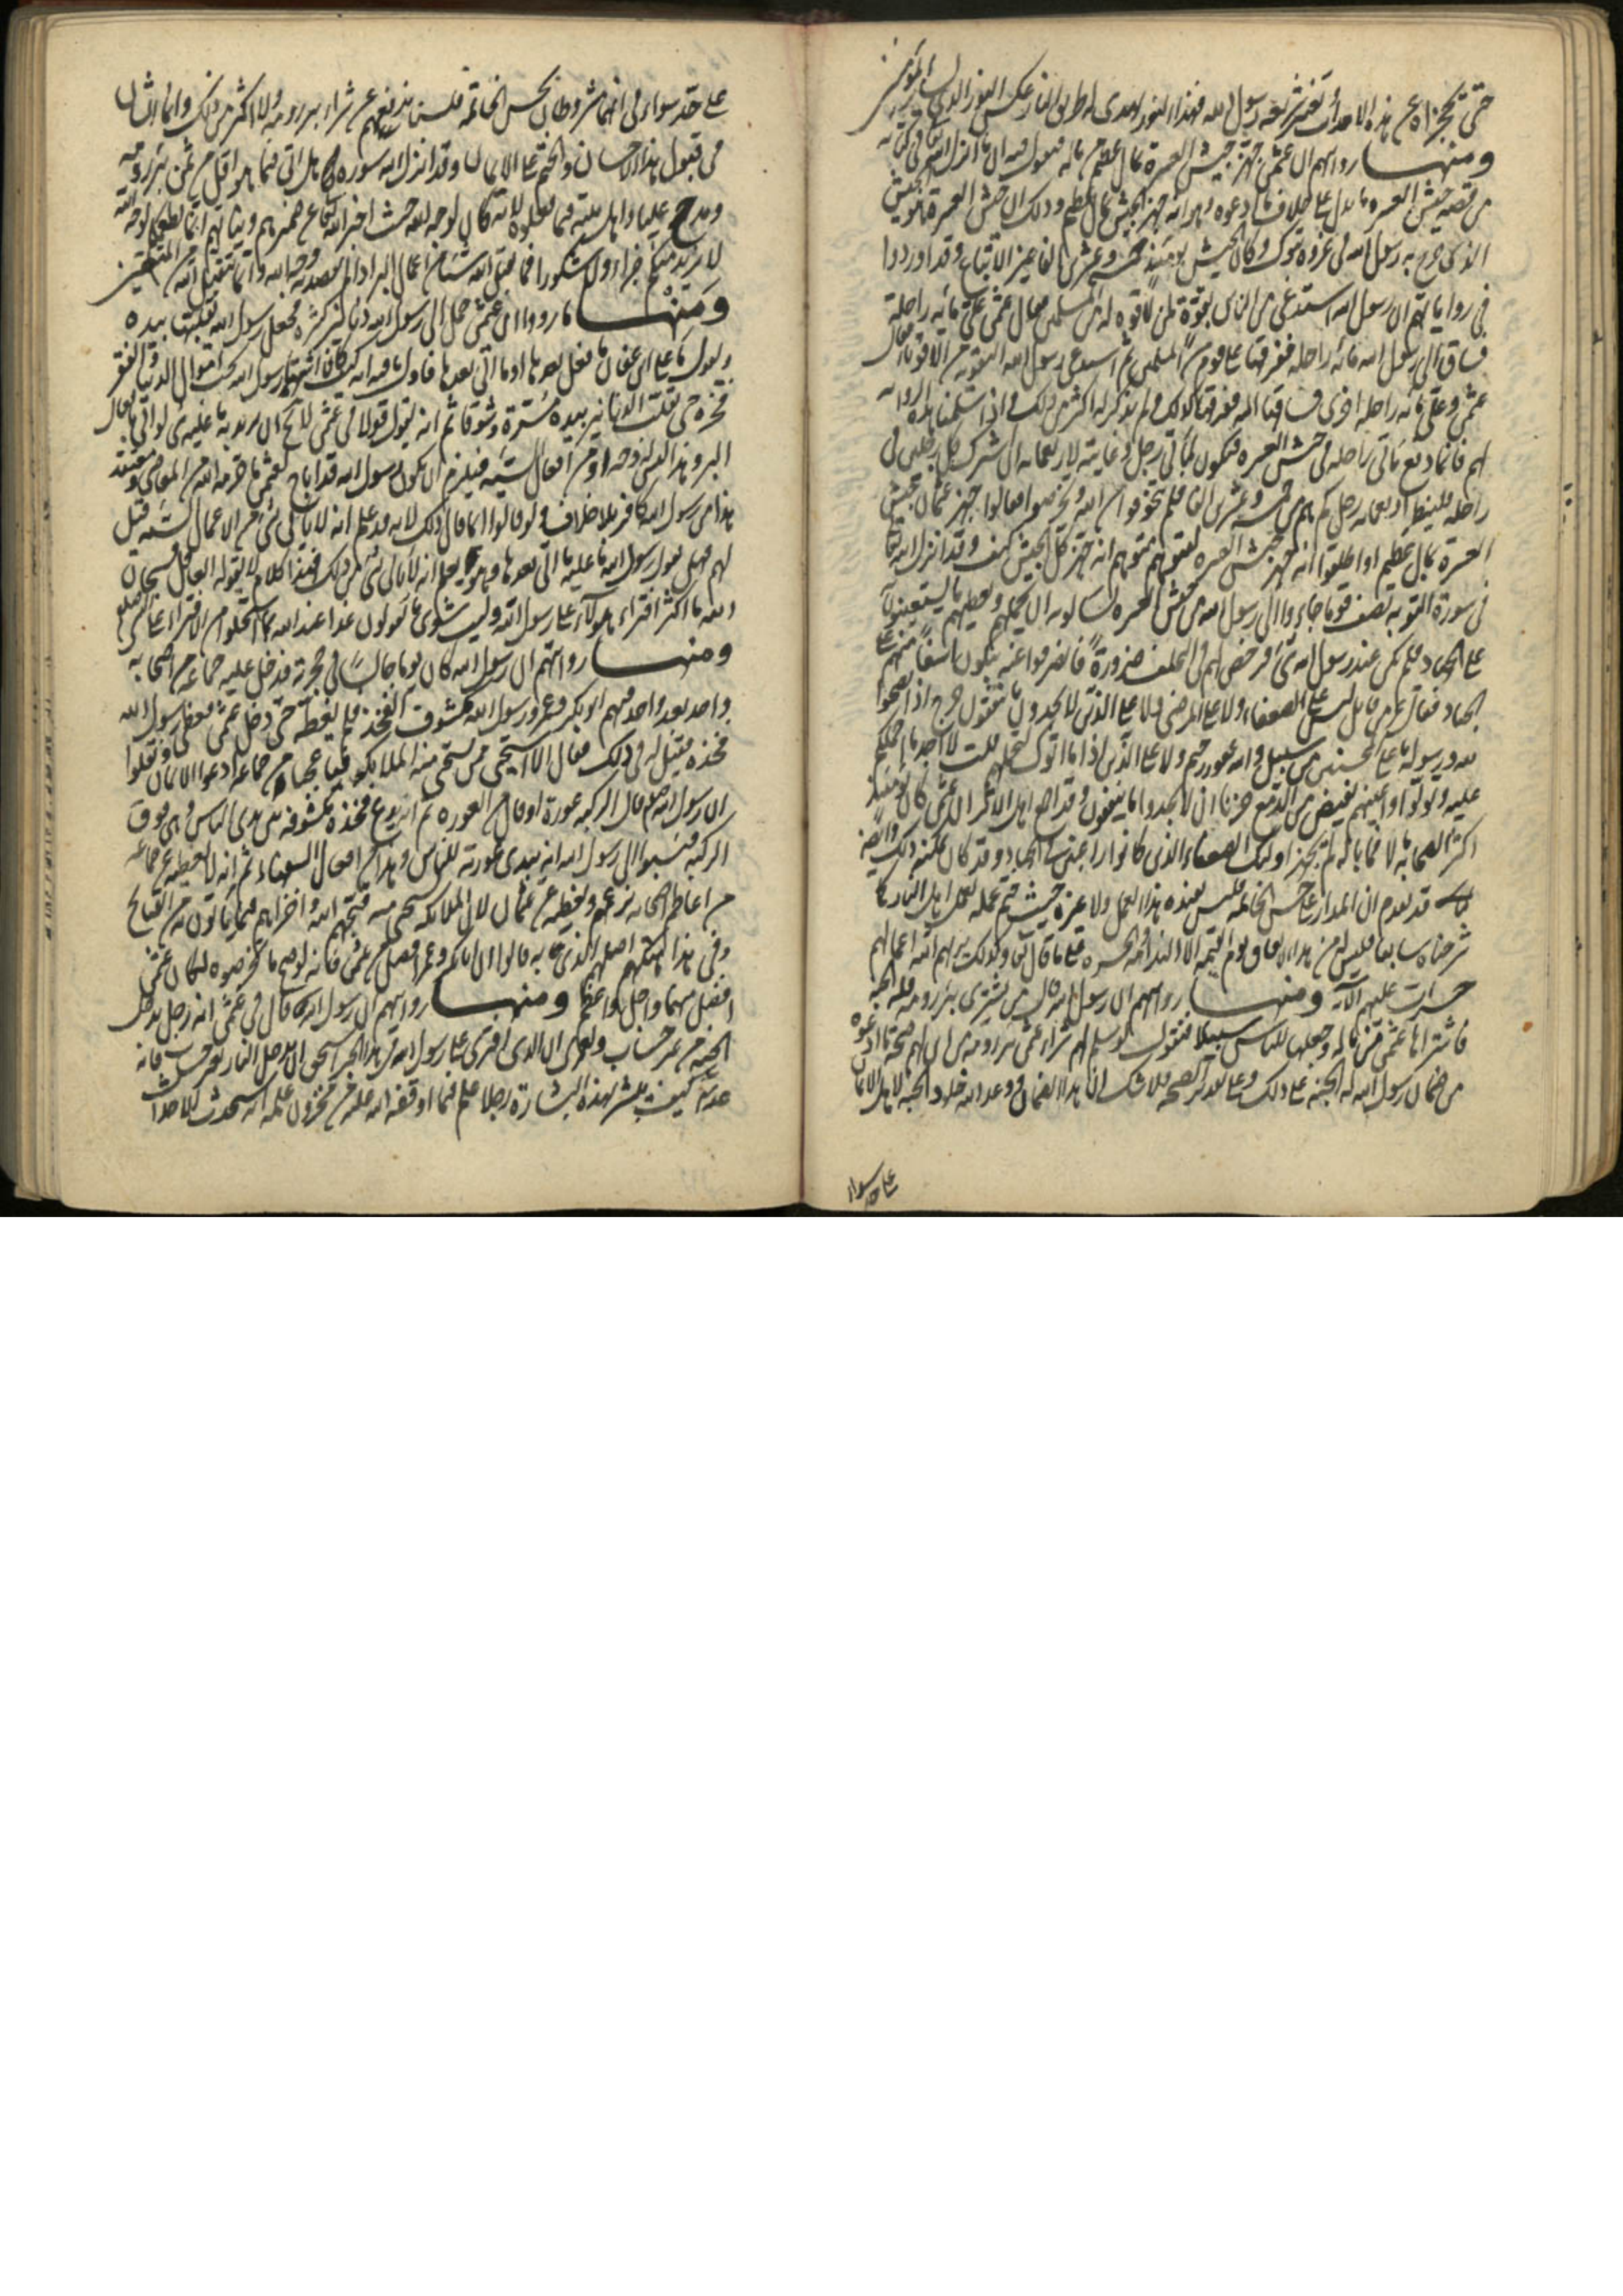 حتى تجزاه عن هذه الاحداث بغير شريعه رسول الله فهذا
ومنها روايتهم ان عثمن جهز جيش العسرة بمال عظيم من ماله فيقول فيه ان ما انزل الله تعالى في كتابه
من قصه جيش العسره ما يدل على خلاف ما ادعوه وهو انه جهز الجيش بمال عظيم وذلك ان جيش العسرة هو جيش
الذى خرج به رسول الله في غزوه تبوك وكان الجيش يومئذ خمسه وعشرين الفا غير الاتباع وقد اوردوا
في رواياتهم ان رسول الله استدعى من الناس بقوة لمن لا قوه له من المسلمين فقال عثمن على مائه راحلة
فساق الى رسول الله مائه راحله ففرقها على قوم من المسلمين ثم استدعى رسول الله التقويه من الاقوياء فقال
عثمن وعلى مائه راحله اخرى فساقها اليه ففرقها كذلك ولم يذكر له اكثر من ذلك فاذا سلمنا هذه الروايه
لهم فانما دفع مائتى راحله فى جيش العسره فيكون لمائتى رجل وغايته لاربعمائه ان شرك كل رجلين فى
راحله فلينظر اربعمائه رجل كم هم من خمسه وعشرين الفا فلم تخوفوا من الله وتخرصوا فقالوا جهز عثمان جيش
العسرة بمال عظيم او اطلقوا انه جهز جيش العسره ليتوهم متوهم انه جهز كل الجيش كيف وقد انزل الله تعالى
فى سورة التوبه تصف قوما جاءوا الى رسول الله من جيش العسره يسالونه ان يحملهم ويعطيهم ما يستعينون
على الجهاد فلم يكن عند رسول الله شئ فرخص لهم فى التخلف ضرورة فانصرفوا عنه يبكون اسفا منهم على
الجهاد فقال عز من قائل ليس على الضعفاء ولا على المرضى ولا على الذين لا يجدون ما ينفقون حرج اذا نصحوا
لله ورسوله ما على المحسنين من سبيل والله غفور رحيم ولا على الذين اذا ما اتوك لتحملهم قلت لا اجد ما احملكم
عليه تولوا واعينهم تفيض من الدمع حزنا ان لا يجدوا ما ينفقون وقد اجمع اهل الاثر ان عثمن كان يومئذ
اكثر الصحابة مالا فما باله لم يجهز اولئك الضعفاء الذين كانوا راغبين فى الجهاد وقد كان يمكنه ذلك وايضا
قد تقدم ان المدار على حسن الخاتمه فليس بفيده هذا العمل ولا غيره حيث ختم عمله بعمل اهل النار كما
شرحناه سابقا فليس له من هذا الانفاق يوم القيمه الا الندامه والحسره على ما قال تعالى وكذلك يريهم الله اعمالهم
حسرات عليهم الآيه ومنها روايتهم ان رسول الله قال من يشترى بئر رومه فله الجنه
فاشتراها عثمن من ماله وجعلها للناس سبيلا فنقول لو سلم لهم شراء عثمن بئر رومه من اين لهم صحة ما ادعوه
من ضمان رسول الله له الجنه على ذلك وعلى تقدير الصحه فلا شك ان هذا الضمان ووعد الله خلود الجنه لاهل الايمان
على حد سواء
على حد سواء فى انهما مشروطان بحسن الخاتمه فليست تدفعهم عن شراء بئر رومه ولا اكثر من ذلك وانما الشان
فى قبول هذا الاحسان والختم على الايمان وقد انزل الله سوره هل اتى فيما هو اقل من ثمن بئر رومه
ومدح عليا واهل بيته فيما فعلوه لانه كان لوجه الله حيث اخبر الله تعالى عن ضميرهم ونياتهم انما نطعمكم لوجه الله
لا نريد منكم جزاء ولا شكورا فما يقبل الله شيئا من اعمال البر اذا لم يقصد به وجه الله وانما يتقبل الله من المتقين
ومنها ما رووا ان عثمن حمل الى رسول الله دنانير كثيره فجعل رسول الله يقلبها بيده
ويقول ما على ابن عفان ما فعل بعدها او ما اتى بعدها
فخره حتى يقلب الدنانير بيده مسرة وشوقا ثم انه يقول قولا فى عثمن
هذا من رسول الله كافر بلا خلاف ولو قالوا انما قال ذلك لانه قد علم انه لا ياتى بشئ من الاعمال السيئه قيل
لهم فهل يقول رسول الله ما عليه ما اتى بعدها وهو يعلم انه لا يأتى بشئ من ذلك فهذا كلام لا يقوله العاقل فسبحان
الله ما اكثر افتراء هؤلاء على رسول الله وليت شعرى ما يقولون غدا عند الله بما استحلوا من الافتراء على النبى
ومنها روايتهم ان رسول الله كان يوما جالسا فى حجرته فدخل عليه جماعه من اصحابه
واحد بعد واحد منهم ابو بكر وعمر ورسول الله مكشوف الفخذ فلم يغطه حتى دخل عثمن فغطى رسول الله
فخذه فقيل له فى ذلك فقال الا استحيى ممن تستحيى منه الملائكه فيا عجباه من جماعه ادعوا الايمان ونقلوا
ان رسول الله صلعم قال الركبه عوره او قال من العوره ثم انه يدع فخذه مكشوفه بين يدى الناس وهى فوق
الركبه فنسبوا الى رسول الله انه يبدى عورته للناس وهذا من افعال السفهاء ثم انه لا يغطيه عن جماعه
من اعاظم الصحابه بزعمهم ويغطيه عن عثمان لان الملائكه تستحيى منه قبحهم الله واخزاهم فيما ياتون من القبائح
وفى هذا ايضا اصلهم الذى به قالوا ان ابا بكر وعمر افضل من عثمن فانه لو صح ما تخرصوه لكان عثمن
افضل منهما واجل واعظم ومنها روايتهم ان رسول الله قال فى عثمن انه رجل يدخل
الجنه من غير حساب ولعمرى ان الذى افترى على رسول الله هذا الخبر استحق ان يدخل النار بغير حساب فانه
كيف يبشر بهذه البشارة رجلا علم فيما اوقفه الله عليه من مخزون علمه انه سيحدث الاحداث